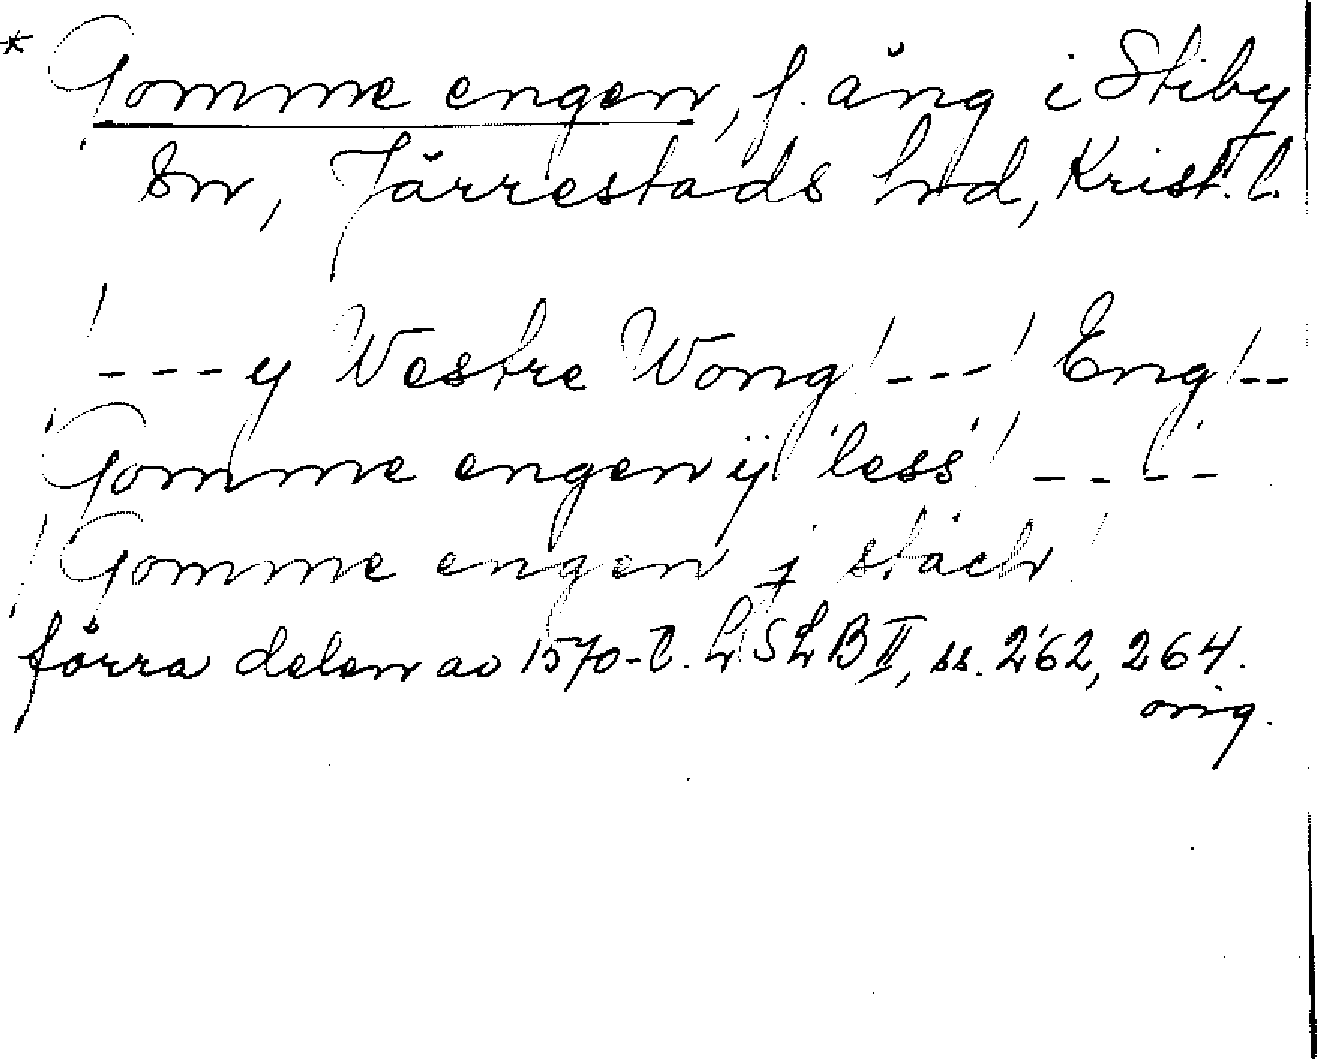 * Gomme engen, f. äng i Stiby
sn, Järrestads hd, Krist. l.
/ - - - y Westre Wong / - - - / Eng / - -
Gomme engen ij less / - - - -
/ Gomme engen j stäch /
förra delen av 1570-t. LSLB II, ss. 262, 264.
orig.